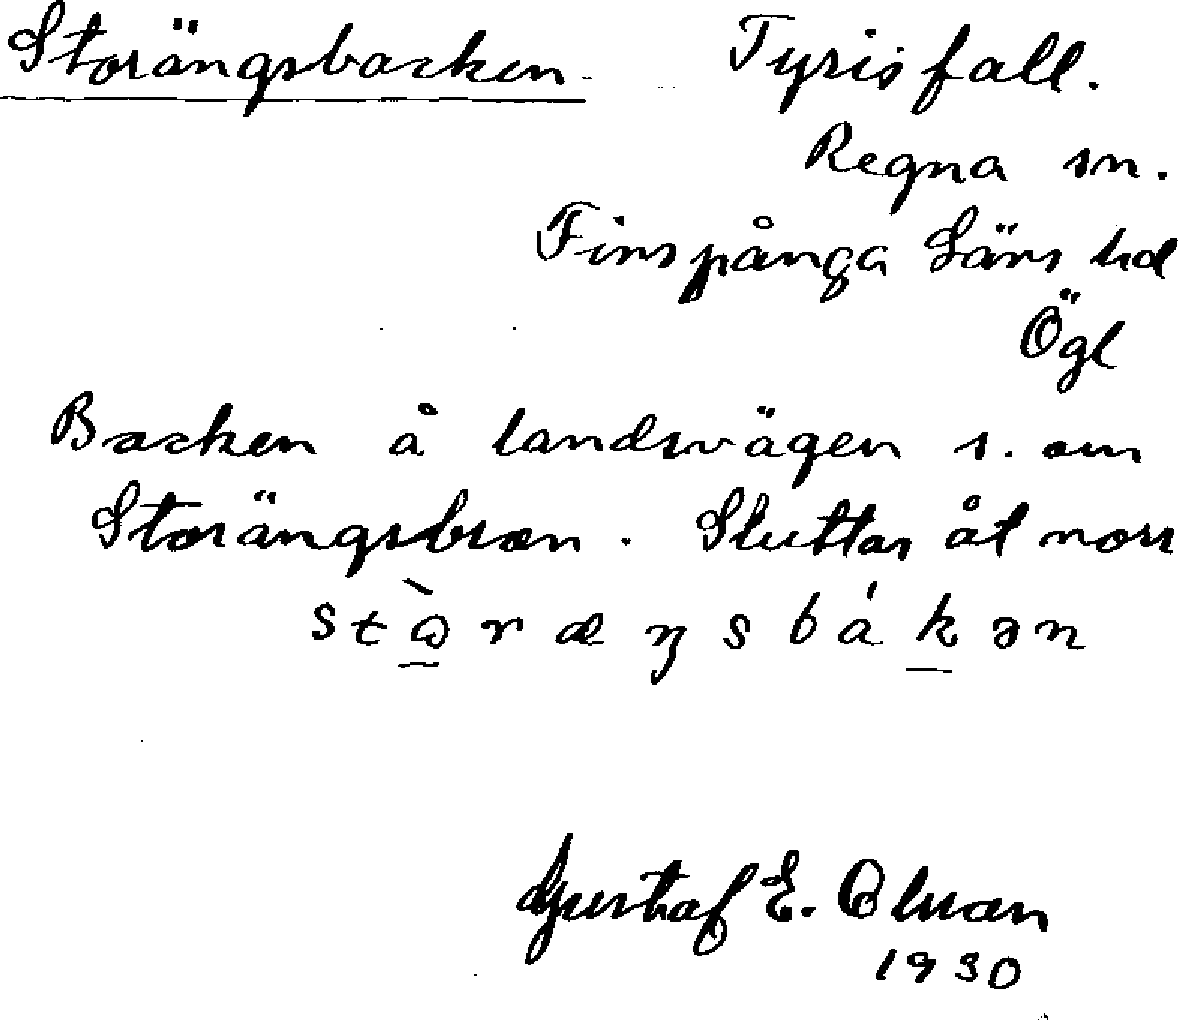 Storängsbacken Tyrisfall.
Regna sn.
Finspånga Läns hd
Ögl
Backen å landsvägen s. om
Storängsbron. Sluttar åt norr
stɷ̀ræŋsbákən
Gustaf E. Olsson
1930